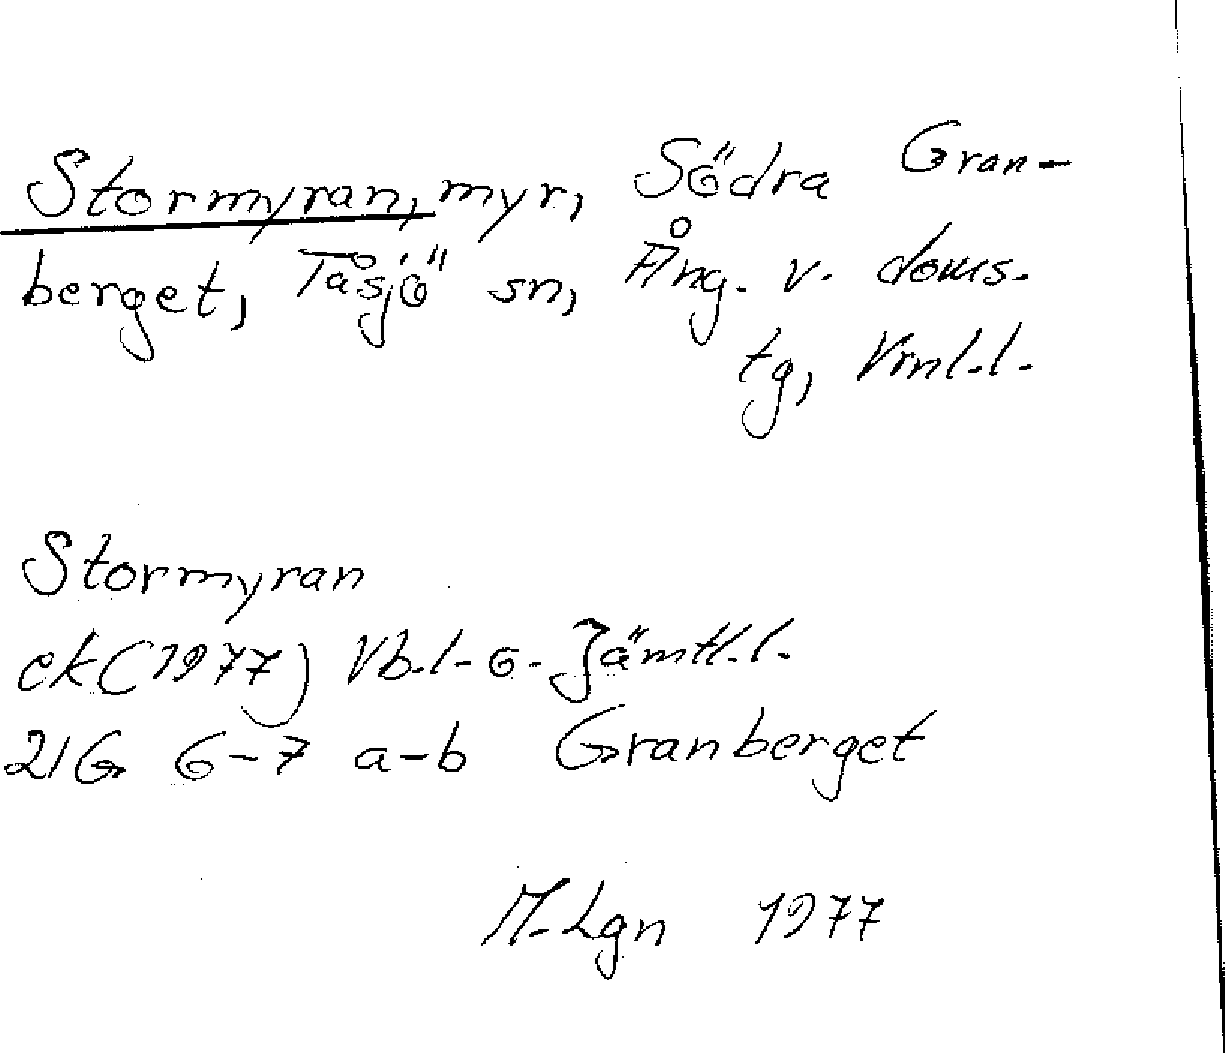 Stormyran, myr, Södra Gran-
berget, Tåsjö sn, Ång. v. doms.
tg, Vnl.l.
Stormyran
ek (1977) Vb.l. o. Jämtl.l.
21G 6-7 a-b Granberget
M. Lgn 1977